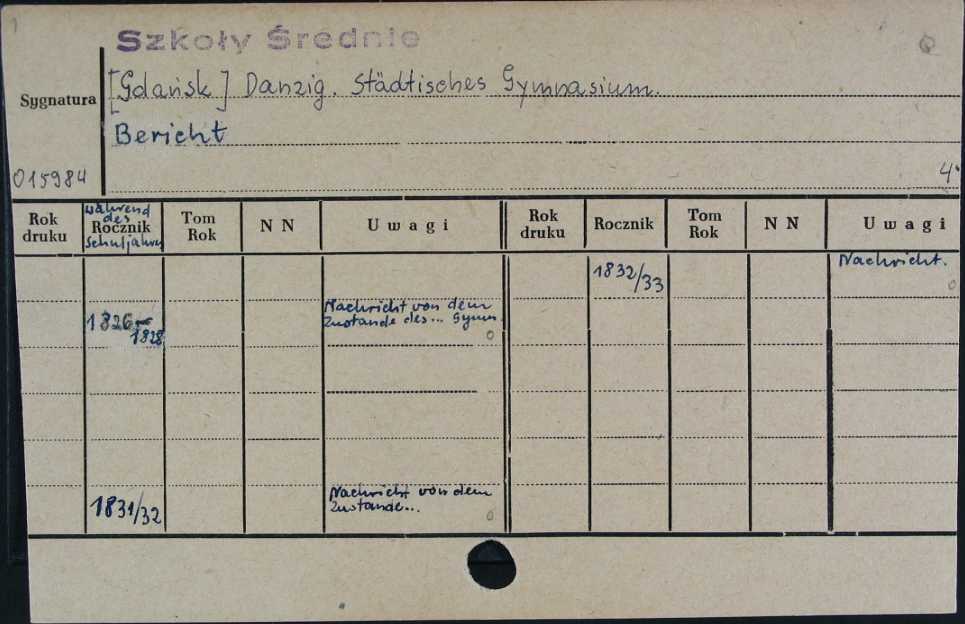 1
Szkoły Średnie
Sygnatura
[Gdańsk] Danzig. Städtisches Gymnasium.
Bericht
015984
4°
Rok druku
während des
Rocznik
Schuljahres
Tom Rok
N N
Uwagi
Rok druku
Rocznik
Tom Rok
N N
Uwagi
1832/33
Nachricht.
o
1826-1828
Nachricht von dem
Zustande des... Gymn.
o
1831/32
Nachricht von dem
Zustande...
o